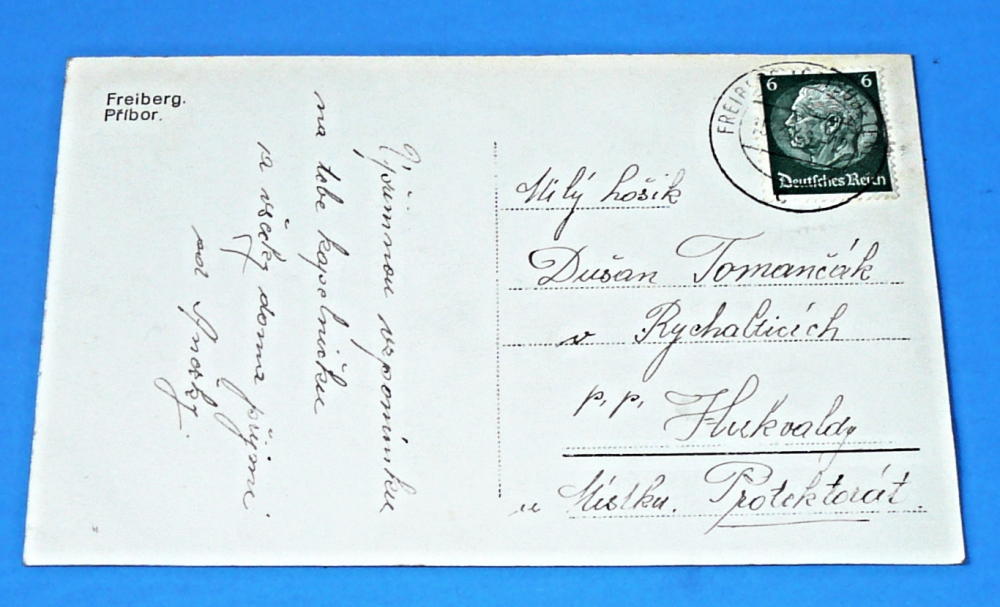 Freiberg.
Příbor.
Upřímnou vzpomínku
na tebe kapelníčku
a všecky doma přijmi
od
6 6
Deutsches Reich
FREIB
Milý hošík
Dušan Tomančák
v Rychalticích
p. p. Hukvaldy
u Místku. Protektorát